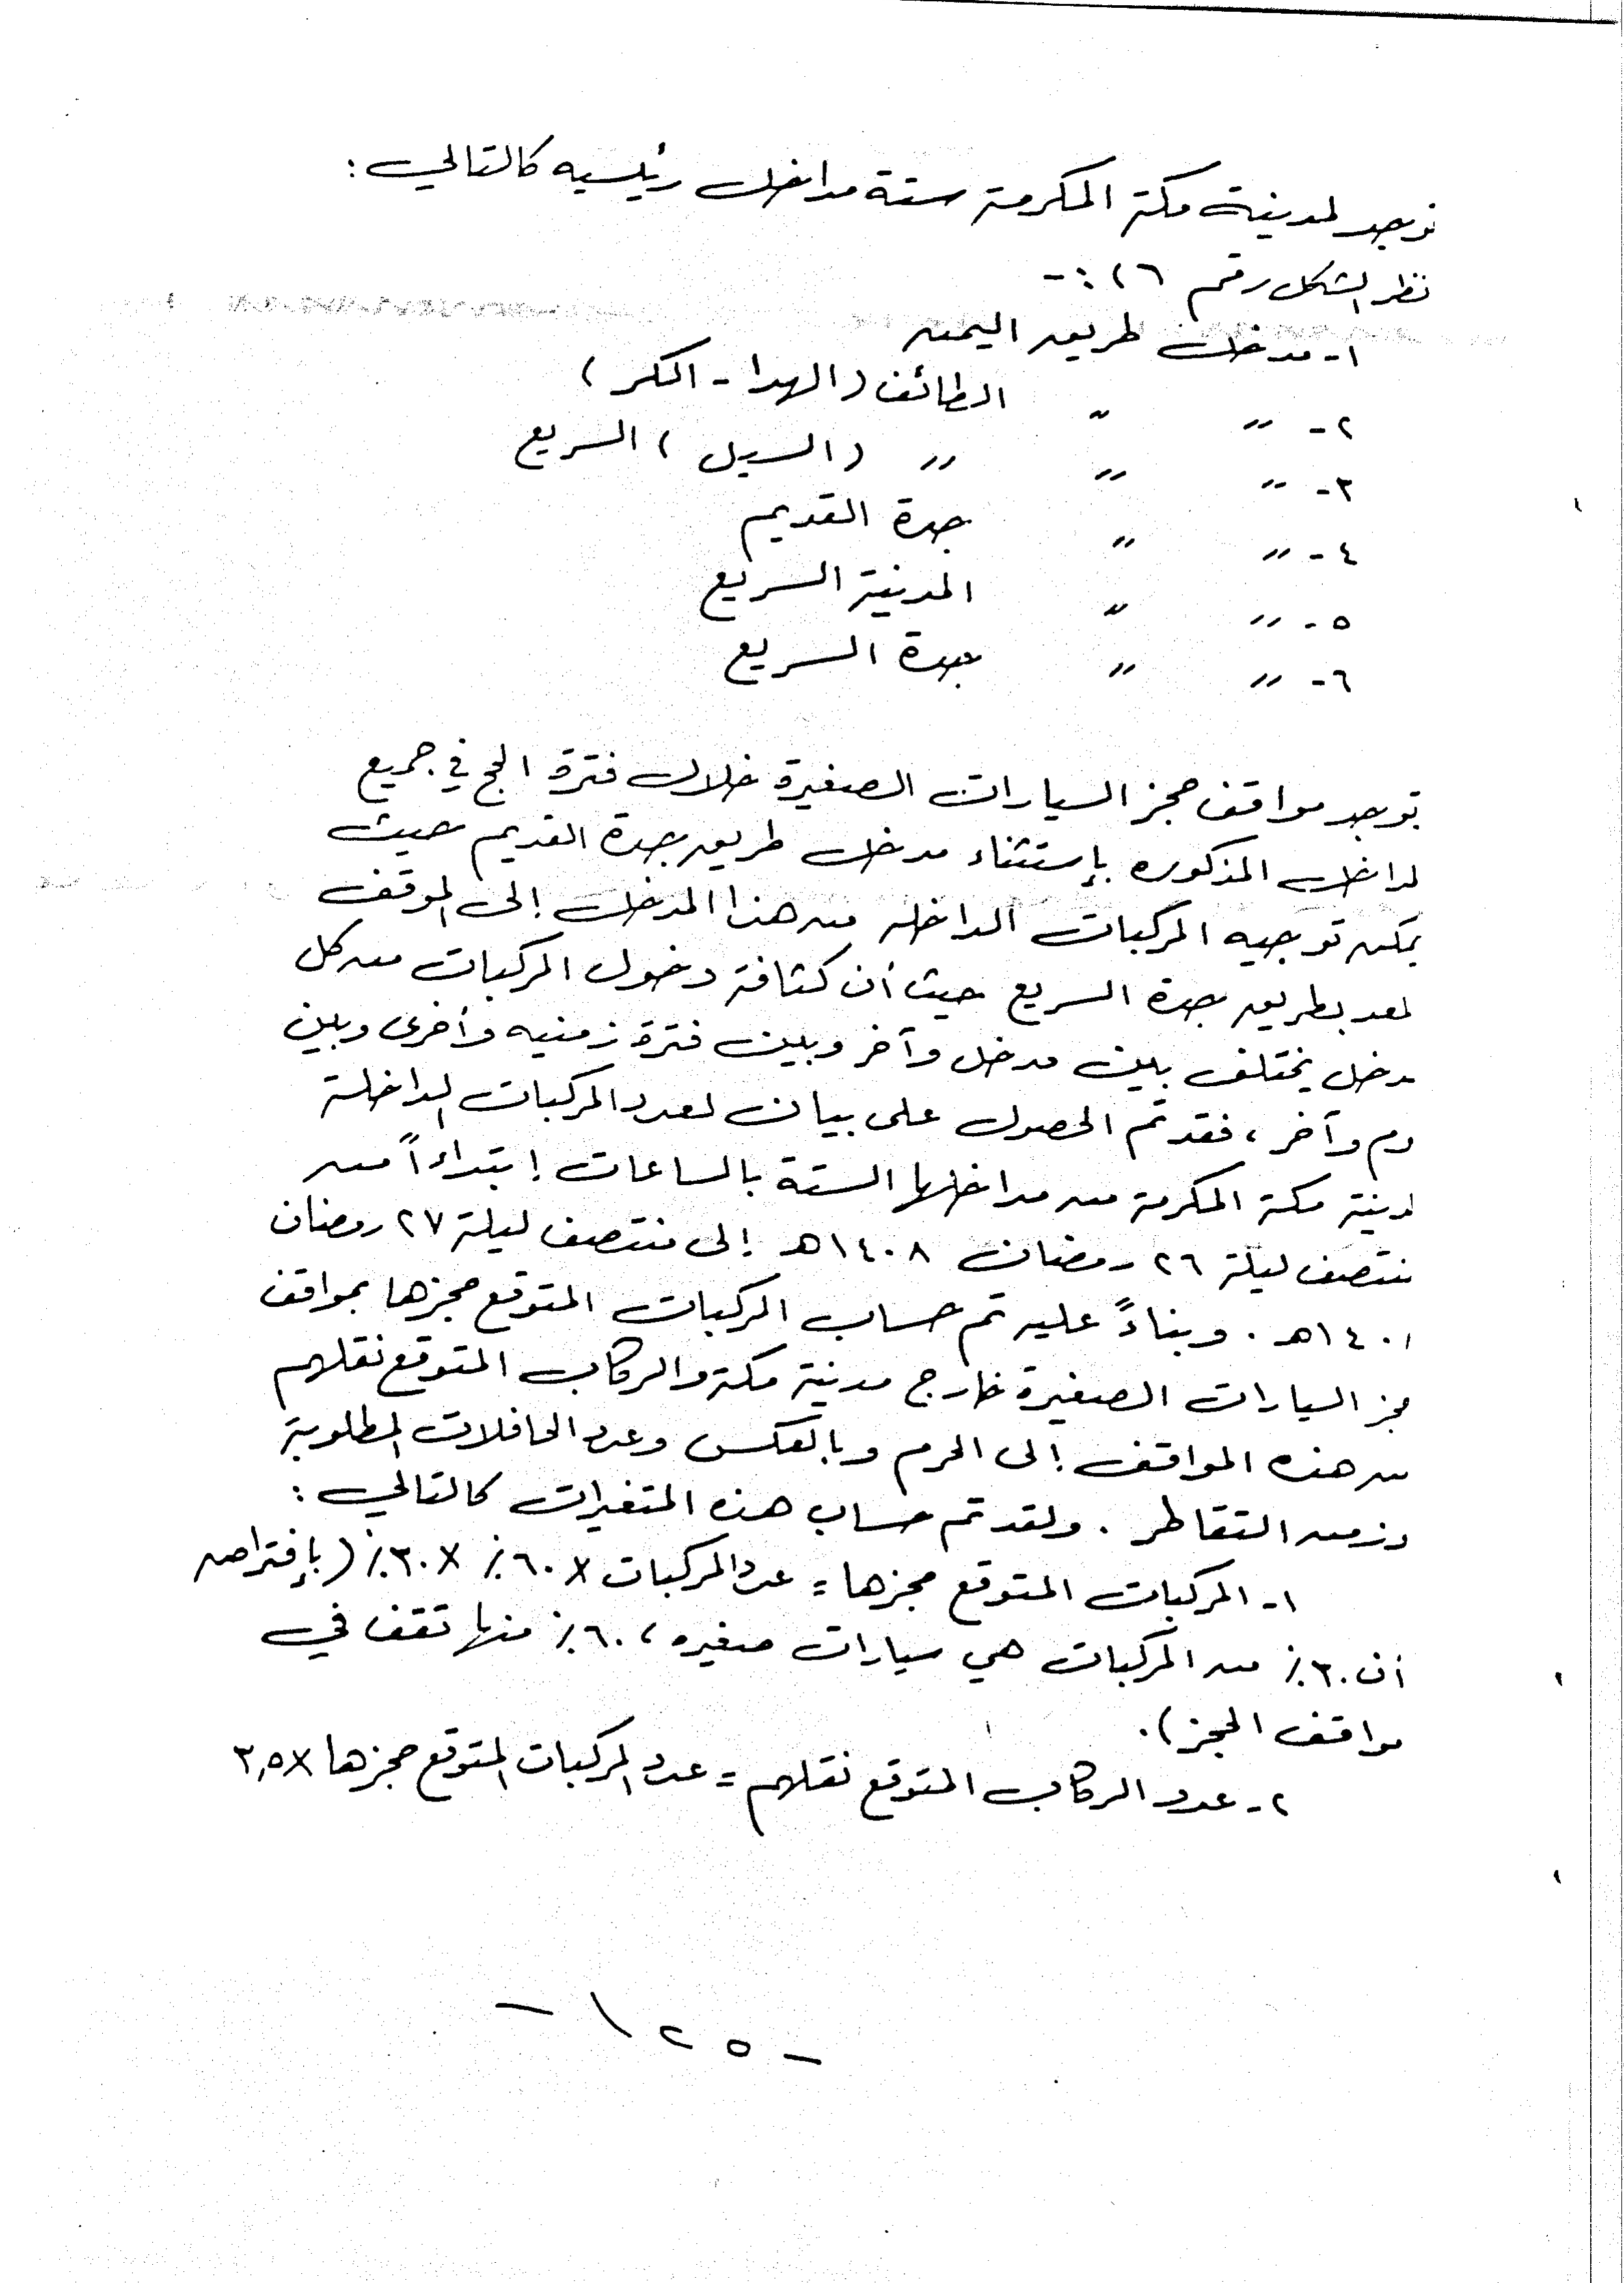 توجد لمدينة مكة المكرمة ستة مداخل رئيسيه كالتالي :
نظر الشكل رقم ٢٦ : -
١ - مدخل طريق اليمن
٢ - " " الطائف ( الهدا - الكر )
٣ - " " " ( السيل ) السريع
٤ - " " جدة القديم
٥ - " " المدينة السريع
٦ - " " جدة السريع
توجد مواقف حجز السيارات الصغيرة خلال فترة الحج في جميع
لمداخل المذكوره بإستثناء مدخل طريق جدة القديم حيث
يمكن توجيه المركبات الداخله من هذا المدخل إلى الموقف
لمعد بطريق جدة السريع حيث أن كثافة دخول المركبات من كل
مدخل يختلف بين مدخل وآخر وبين فترة زمنيه وأخرى وبين
وم وآخر ، فقد تم الحصول على بيان لعدد المركبات الداخلة
لمدينة مكة المكرمة من مداخلها الستة بالساعات إبتداءاً من
منتصف ليلة ٢٦ رمضان ١٤٠٨هـ إلى منتصف ليلة ٢٧ رمضان
١٤٠١هـ . وبناءً عليه تم حساب المركبات المتوقع حجزها بمواقف
حجز السيارات الصغيرة خارج مدينة مكة والركاب المتوقع نقلهم
من هذه المواقف إلى الحرم وبالعكس وعدد الحافلات المطلوبة
وزمن التقاطر . ولقد تم حساب هذه المتغيرات كالتالي :
١ - المركبات المتوقع حجزها = عدد المركبات × ٦٠٪ × ٣٠٪ ( بإفتراض
أن ٣٠٪ من المركبات هي سيارات صغيره ، ٦٠٪ منها تقف في
مواقف الحجز ) .
٢ - عدد الركاب المتوقع نقلهم = عدد المركبات المتوقع حجزها × ٣,٥
- ١٢٥ -